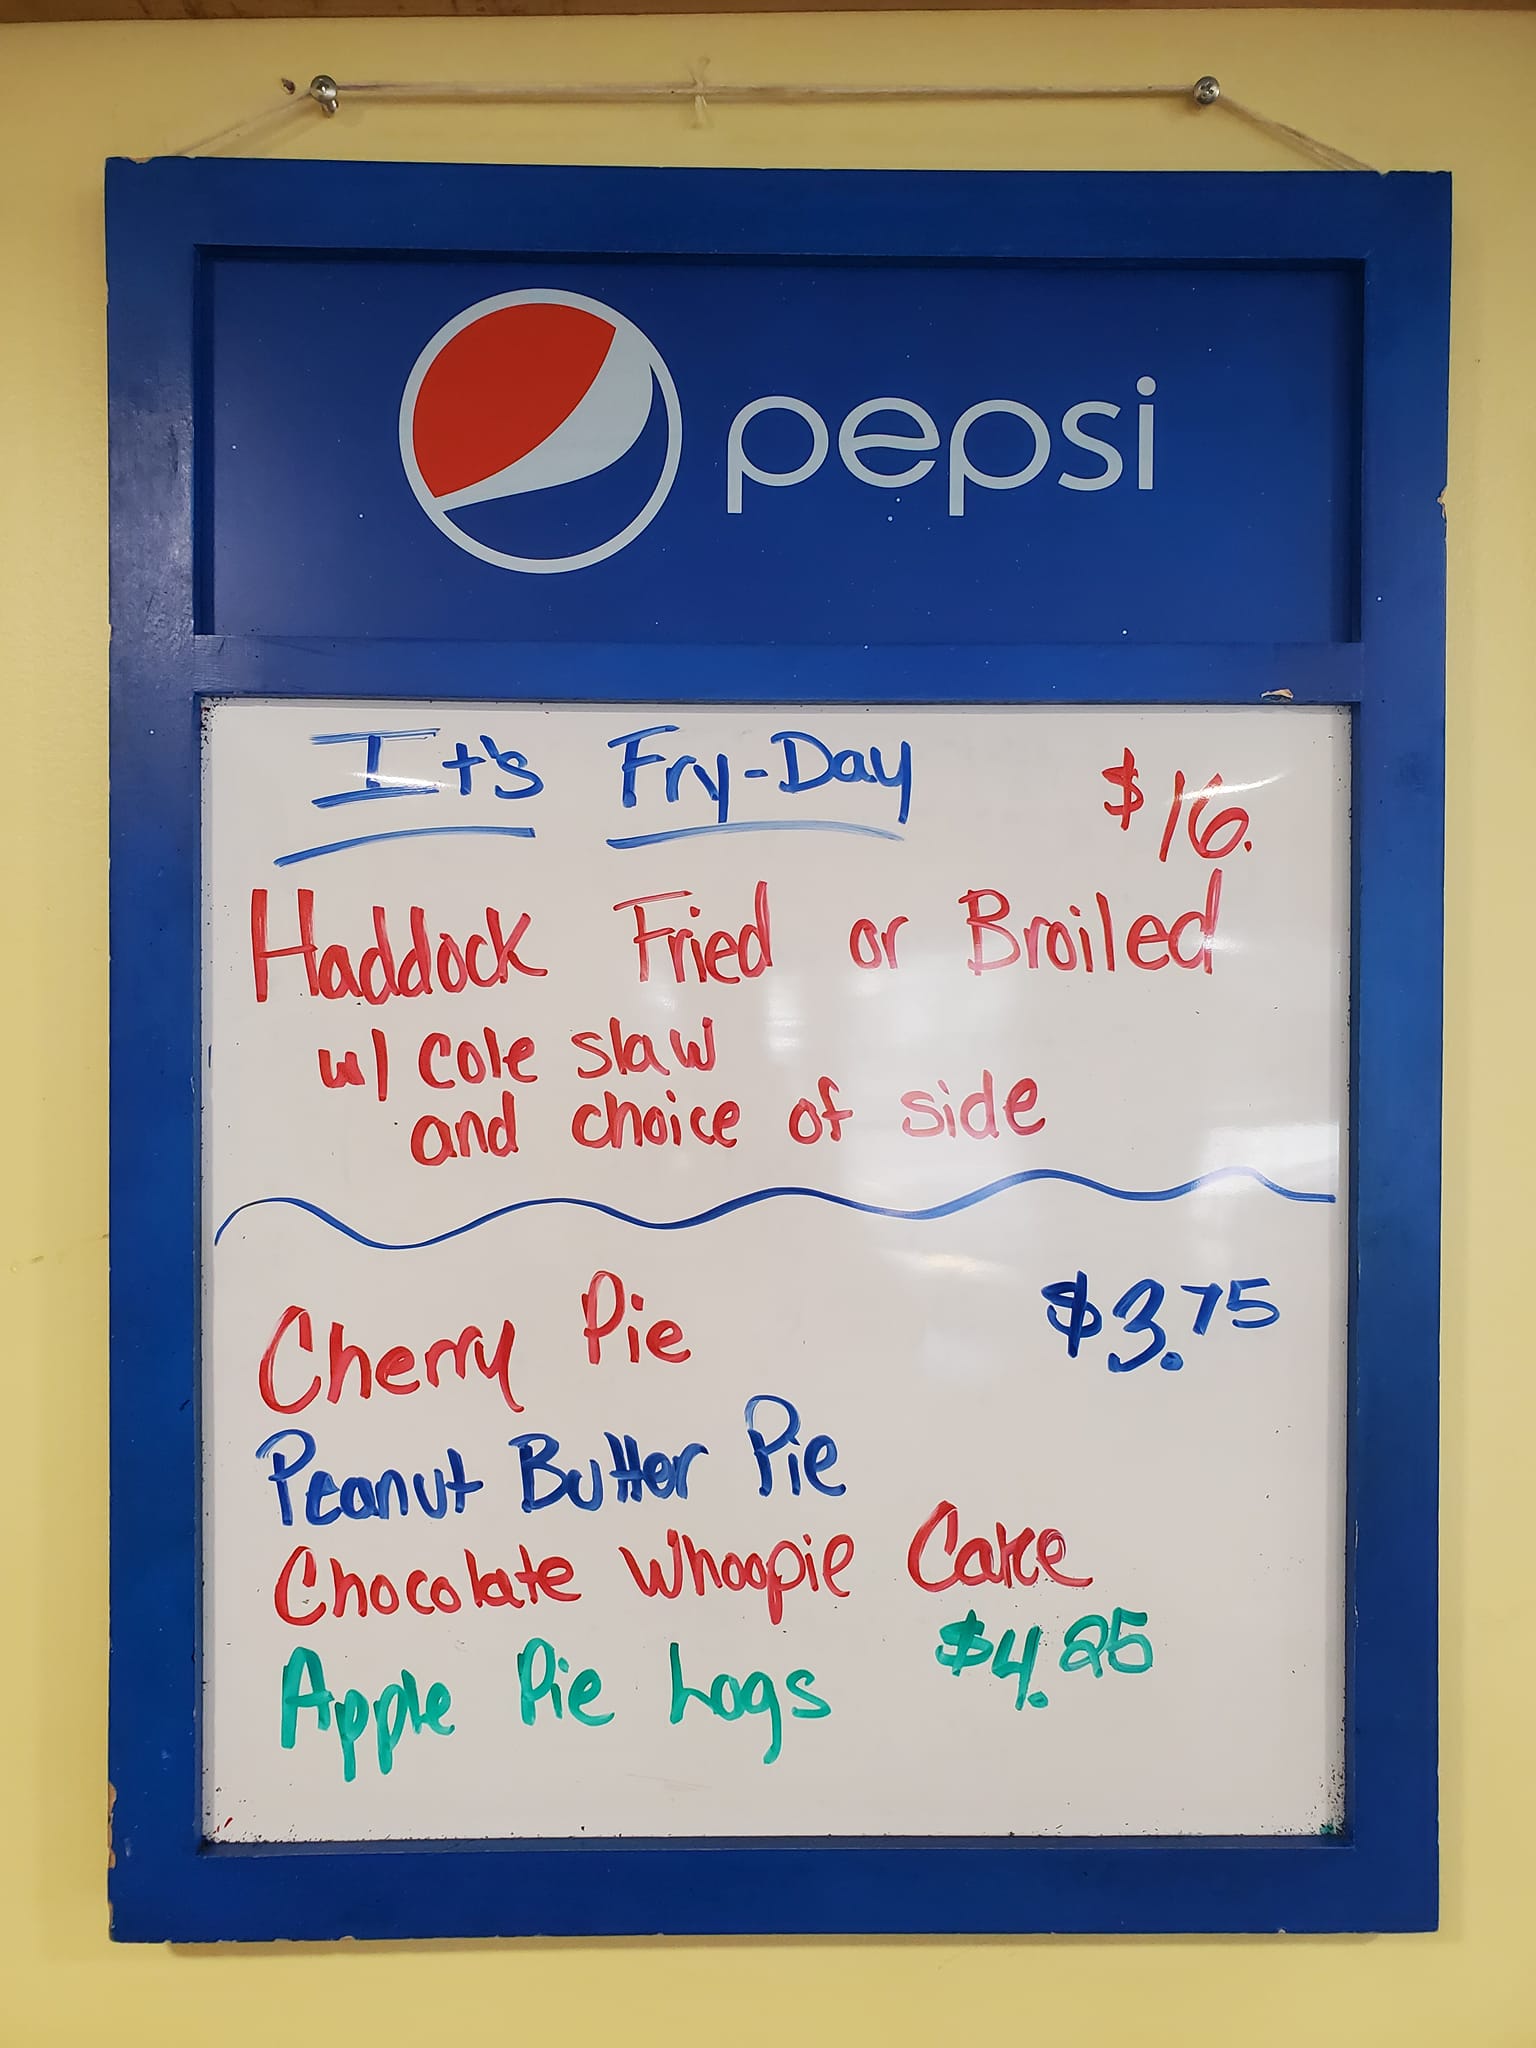 pepsi
It's Fry-Day $16.
Haddock Fried or Broiled
w/ Cole slaw
and choice of side
Cherry Pie $3.75
Peanut Butter Pie
Chocolate Whoopie Cake
Apple Pie Logs $4.25